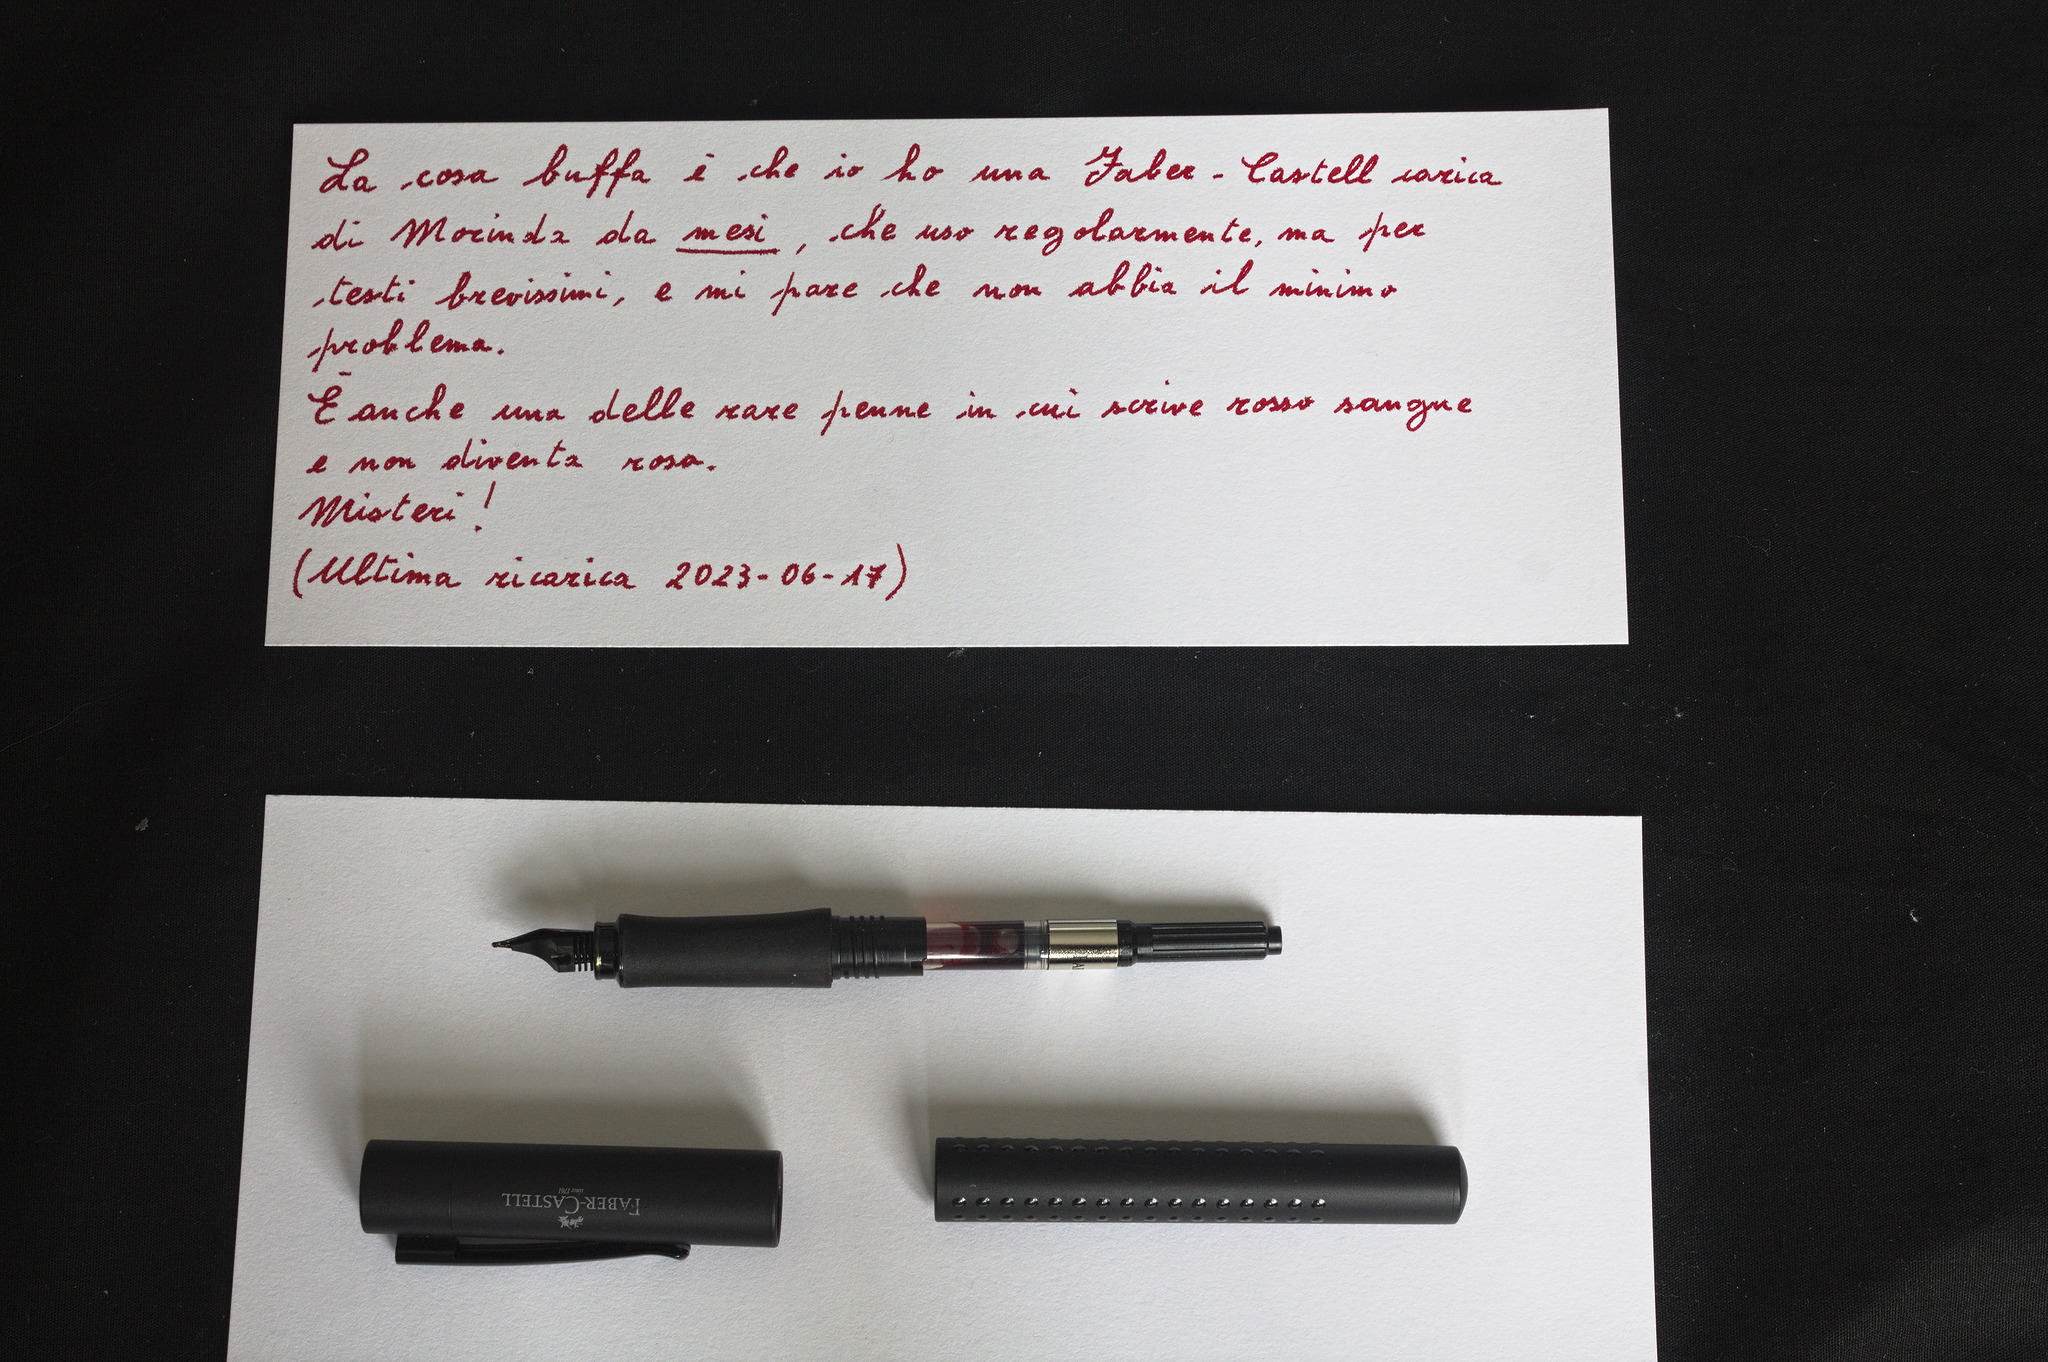 La cosa buffa è che io ho una Faber-Castell carica
di Morinda da mesi, che uso regolarmente, ma per
testi brevissimi, e mi pare che non abbia il minimo
problema.
È anche una delle rare penne in cui scrive rosso sangue
e non diventa rosa.
Misteri!
(Ultima ricarica 2023-06-17)
FABER-CASTELL
since 1761